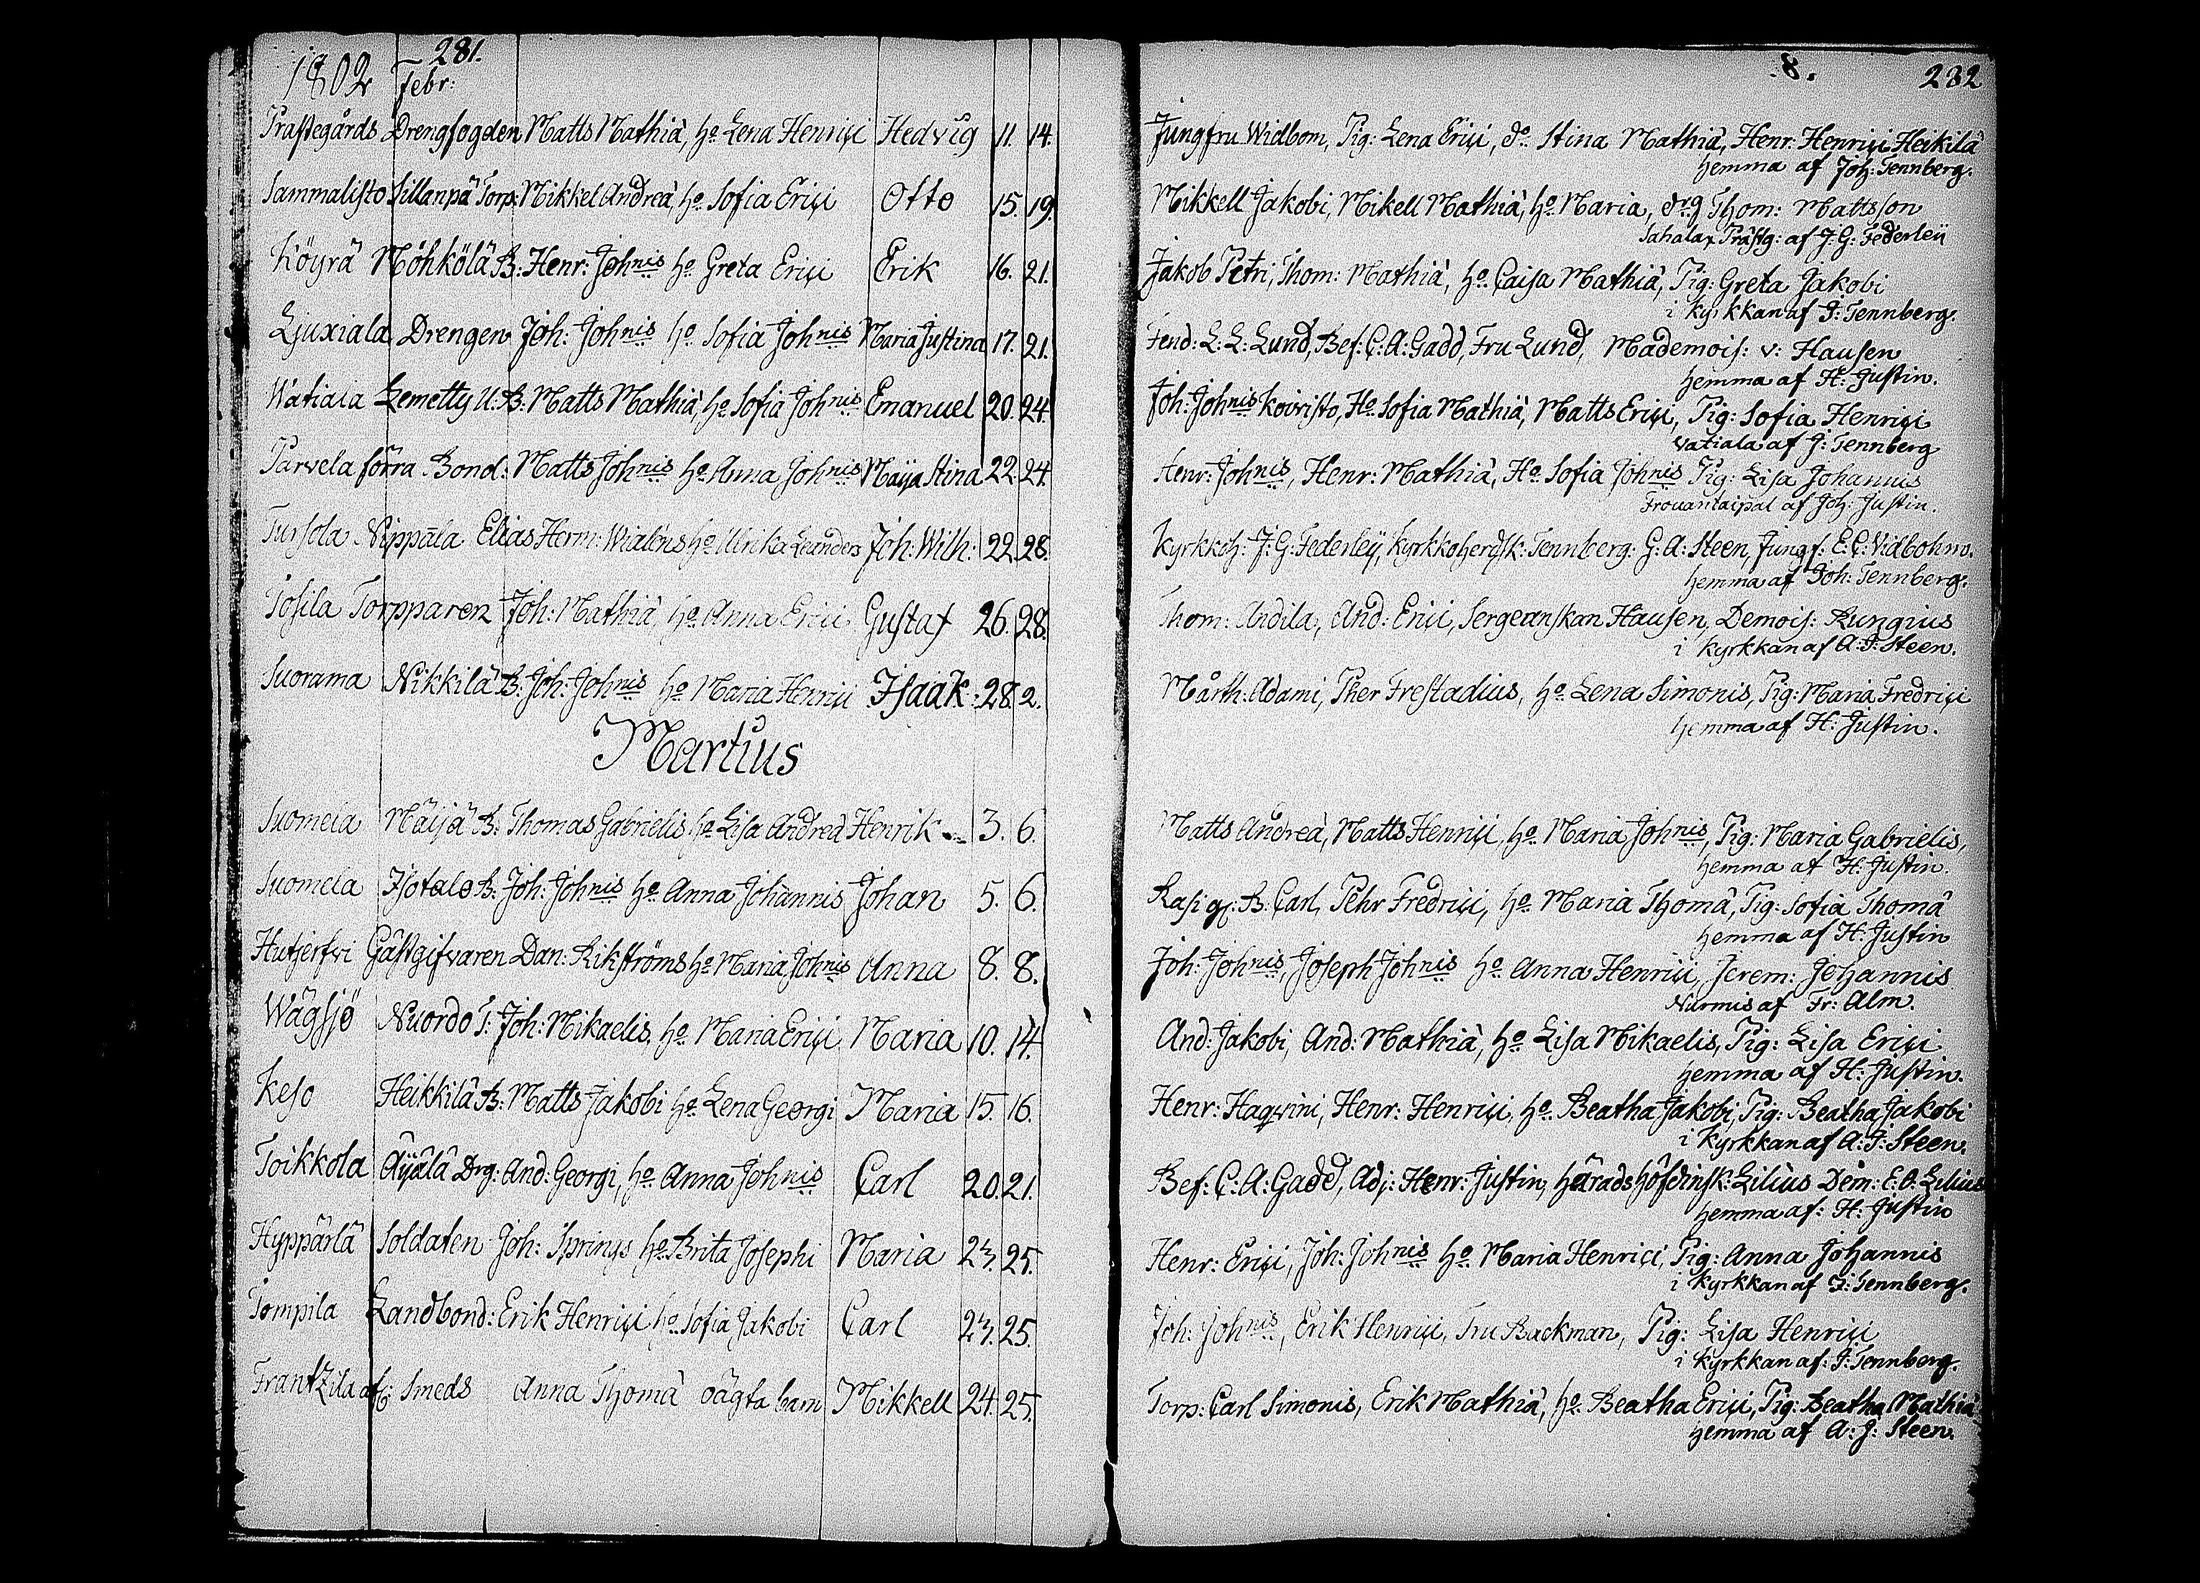 281.
1802 Febr:
Prästegårds Drengfogden Matts Mathiæ, ho Lena Henrici Hedvig 11. 14.
Sammalisto Sillanpä Torp: Mikkel Andreæ, ho Sofia Erici Otto 15. 19.
Köyrä Möhkölä B: Henr: Johnis ho Greta Erici Erik 16. 21.
Ljuxiala Drengen Joh: Johnis ho Sofia Johnis Maria Justina 17. 21.
Watiala Lemetty U. B: Matts Mathiæ, ho Sofia Johnis Emanuel 20. 24.
Parvela förra Bond: Matts Johnis ho Anna Johnis Maija Stina 22. 24.
Tursola Nippala Elias Herm: Wialéns ho Ulrika Leanders Joh: Wilh: 22. 28.
Tosila Torpparen Joh: Mathiæ, ho Anna Erici Gustaf 26. 28.
Suorama Nikkilä B: Joh: Johnis ho Maria Henrici Isaak: 28. 2.
Martius
Suomela Mäijä B: Thomas Gabrielis ho Lisa Andreæ Henrik 3. 6.
Suomela Isotalo B: Joh: Johnis ho Anna Johannis Johan 5. 6.
Hutjerfvi Gästgifvaren Dan: Rikströms ho Maria Johnis Anna 8. 8.
Wägsjö Nuordo T: Joh: Mikaelis, ho Maria Erici Maria 10. 14.
Keso Heikkilä B: Matts Jakobi ho Lena Georgi Maria 15. 16.
Toikkola Äijälä Drg: And: Georgi, ho Anna Johnis Carl 20. 21.
Hyppärlä Soldaten Joh: Springs ho Brita Josephi Maria 23. 25.
Tompila Landbond: Erik Henrici ho Sofia Jakobi Carl 23. 25.
Frantzila Smeds Anna Thomæ oägta barn Mikkell 24. 25.
8. 282
Jungfru Widbom, Pig: Lena Erici, do Stina Mathiæ, Henr: Henrici Heikilä
hemma af Joh: Tennberg.
Mikkell Jakobi, Mikell Mathiæ, ho Maria, drg Thom: Mattsson
Sahalax Prästg: af J: G: Federleij
Jakob Petri, Thom: Mathiæ, ho Caisa Mathiæ, Pig: Greta Jakobi
i kyrkkan af J: Tennberg.
Fend: L: L: Lund, Bef: C: A: Gadd, Fru Lund, Mademois: v: Hausen
hemma af H: Justin.
Joh: Johnis Koivisto, Ho Sofia Mathiæ, Matts Erici, Pig: Sofia Henrici
Vatiala af J: Tennberg
Henr: Johnis, Henr: Mathiæ, Ho Sofia Johnis Pig: Lisa Johannis
af Joh: Justin.
Kyrkkoh: J: G: Federleij, Kyrkkoherdsk: Tennberg: G: A: Steen, Jungf: E: C: Vidbohm.
hemma af Joh: Tennberg.
Thom: Andila, And: Erici, Sergeanskan Hausen, Demois: Rungius
i kyrkkan af A: J: Steen.
Mårth: Adami, Pher Frestadius, ho Lena Simonis, Pig: Maria Fredrici
hemma af H: Justin.
Matts Andreæ, Matts Henrici, ho Maria Johnis, Pig: Maria Gabrielis,
hemma af H: Justin.
B: Carl, Pehr Fredrici, ho Maria Thomæ, Pig: Sofia Thomæ
hemma af H: Justin
Joh: Johnis, Joseph Johnis ho Anna Henrici, Jerem: Johannis
Nurmis af Fr: Alm.
And: Jakobi, And: Mathiæ, ho Lisa Mikaelis, Pig: Lisa Erici
hemma af H: Justin.
Henr: Haqvini, Henr: Henrici, ho Beatha Jakobi, Pig: Beatha Jakobi
i kyrkkan af A: J: Steen.
Bef: C: A: Gadd, Adj: Henr: Justin, Häradshöfdinsk: Lilius Dem: E. O: Lilius
hemma af: H: Justin
Henr: Erici, Joh: Johnis ho Maria Henrici, Pig: Anna Johannis
i kyrkkan af J: Tennberg.
Joh: Johnis, Erik Henrici, Fru Backman, Pig: Lisa Henrici
i kyrkkan af: J: Tennberg.
Torp: Carl Simonis, Erik Mathiæ, ho Beatha Erici, Pig: Beatha Mathiæ
hemma af A: J: Steen.